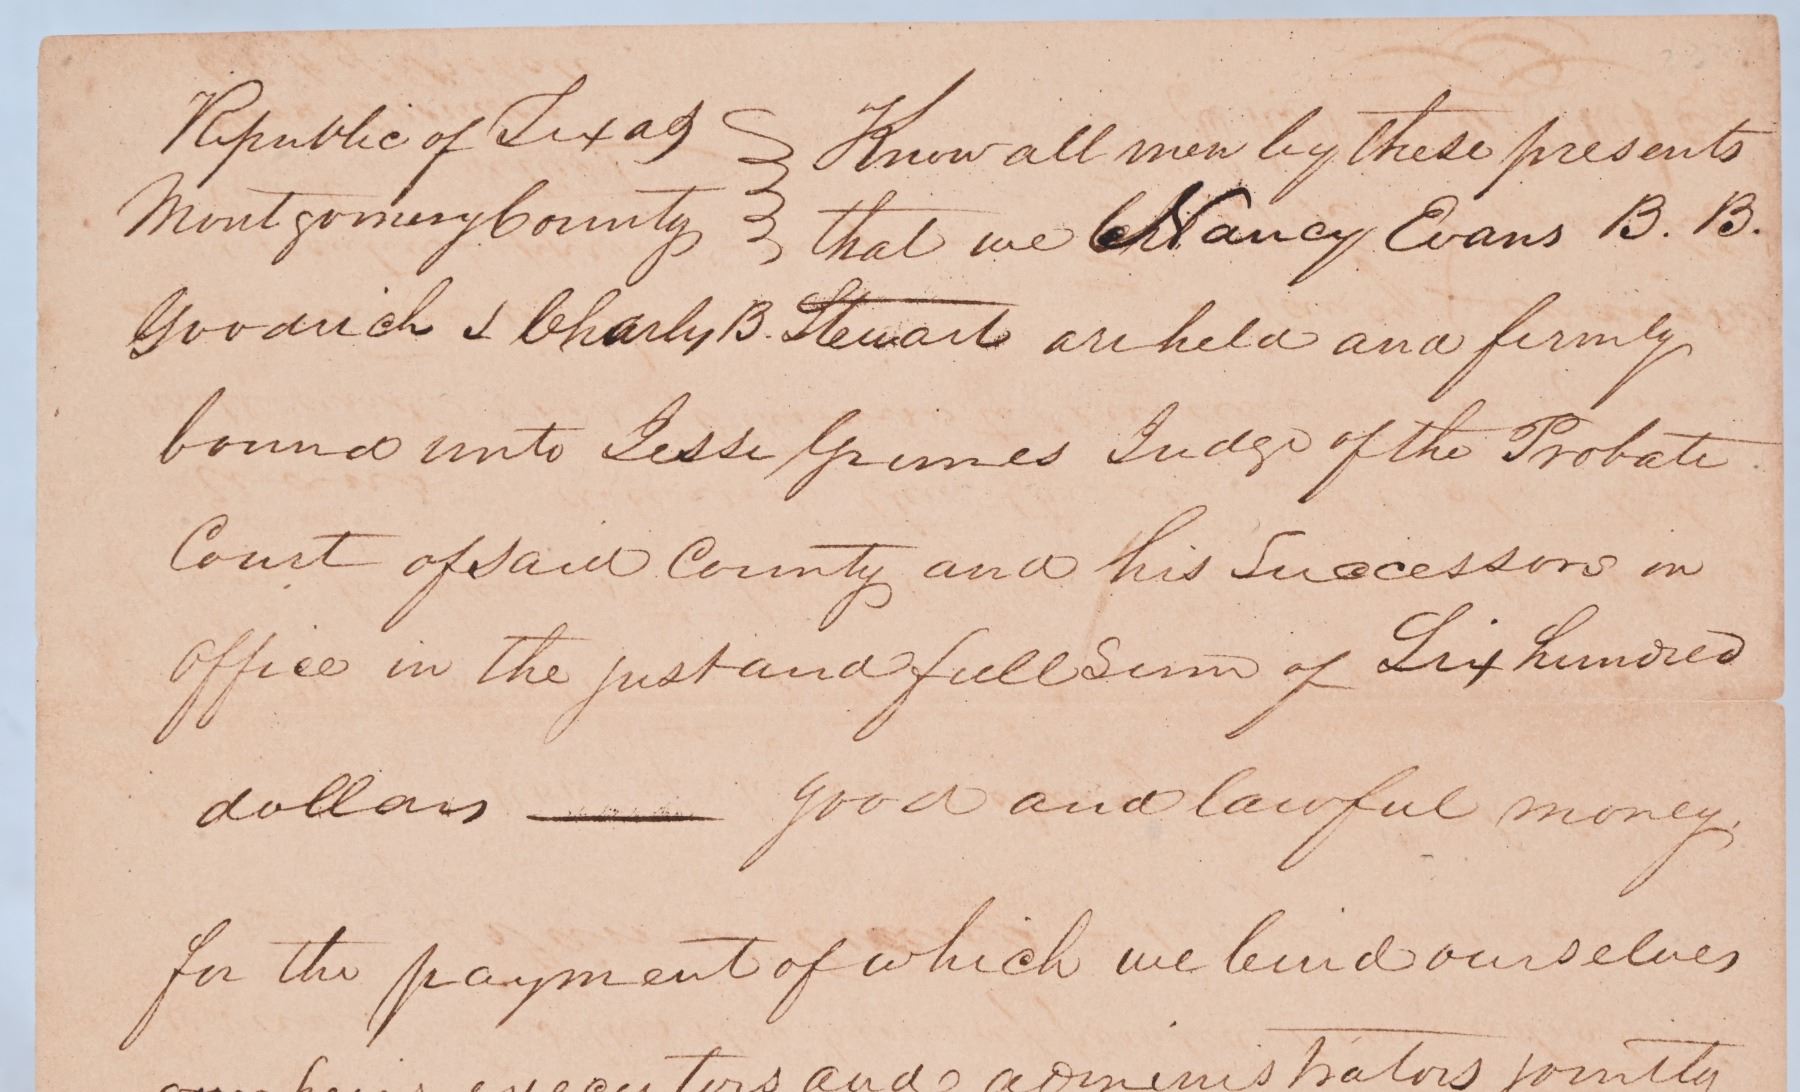 Republic of Texas } Know all men by these presents
Montgomery County } that we Nancy Evans B. B.
Goodrich & Charles B. Stewart are held and firmly
bound unto Jesse Grimes Judge of the Probate
Court of said County and his Successors in
office in the just and full Sum of Six hundred
dollars —— good and lawful money,
for the payment of which we bind ourselves
our heirs executors and administrators jointly